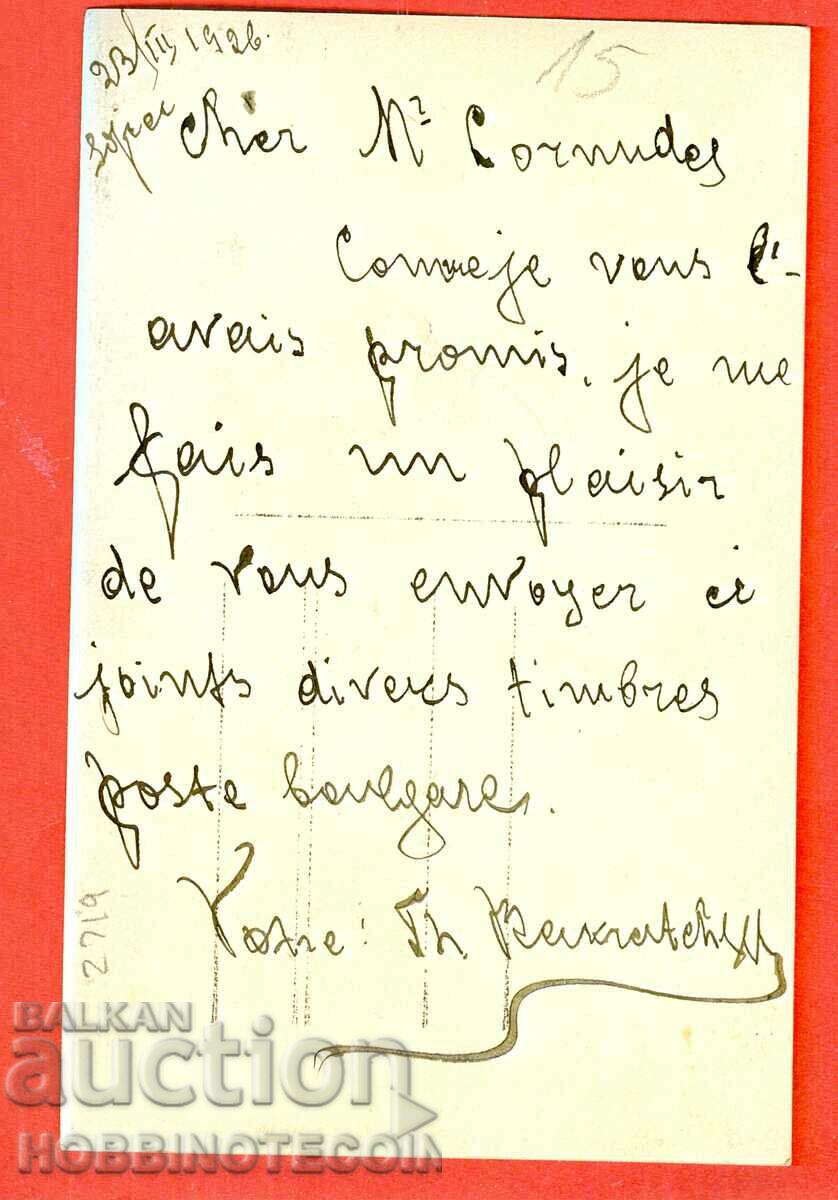 23/III 1926.
15
Cher Mr Cornudes
Comme je vous l'-
avais promis, je me
fais un plaisir
de vous envoyer ci
joints divers timbres
poste boulgares.
Votre: Th.
2719
BALKAN
auction
HOBBINOTECOIN